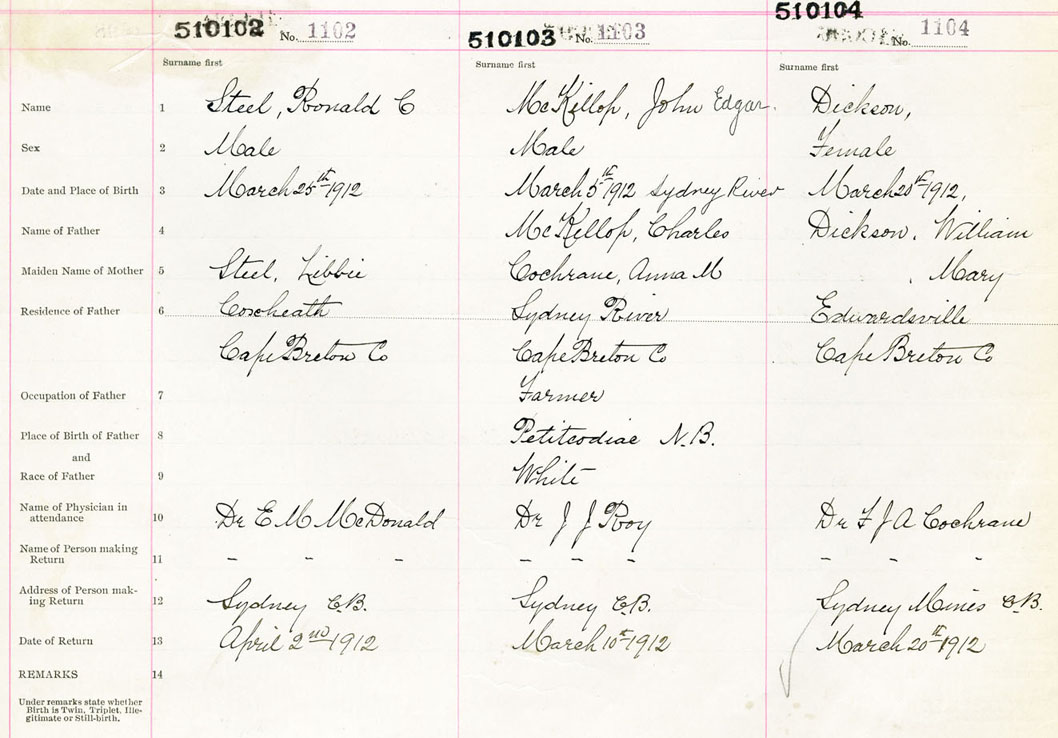 510102 No. 1102 510103 No. 1103 510104 No. 1104
Surname first Surname first Surname first
Name 1 Steel, Ronald C McKillop, John Edgar. Dickson,
Sex 2 Male Male Female
Date and Place of Birth 3 March 25th 1912 March 5th 1912 Sydney River March 20th 1912,
Name of Father 4 McKillop, Charles Dickson, William
Maiden Name of Mother 5 Steel, Libbie Cochrane, Anna M , Mary
Residence of Father 6 Coxheath Sydney River Edwardsville
Cape Breton Co Cape Breton Co Cape Breton Co
Occupation of Father 7 Farmer
Place of Birth of Father 8 Petitcodiac N.B.
and
Race of Father 9 White
Name of Physician in
attendance 10 Dr E M McDonald Dr J J Roy Dr F J A Cochrane
Name of Person making
Return 11 - - - - - - - - -
Address of Person mak-
ing Return 12 Sydney C.B. Sydney C.B. Sydney Mines C.B.
Date of Return 13 April 2nd 1912 March 10th 1912 March 20th 1912
REMARKS 14
Under remarks state whether
Birth is Twin, Triplet, Ille-
gitimate or Still-birth.